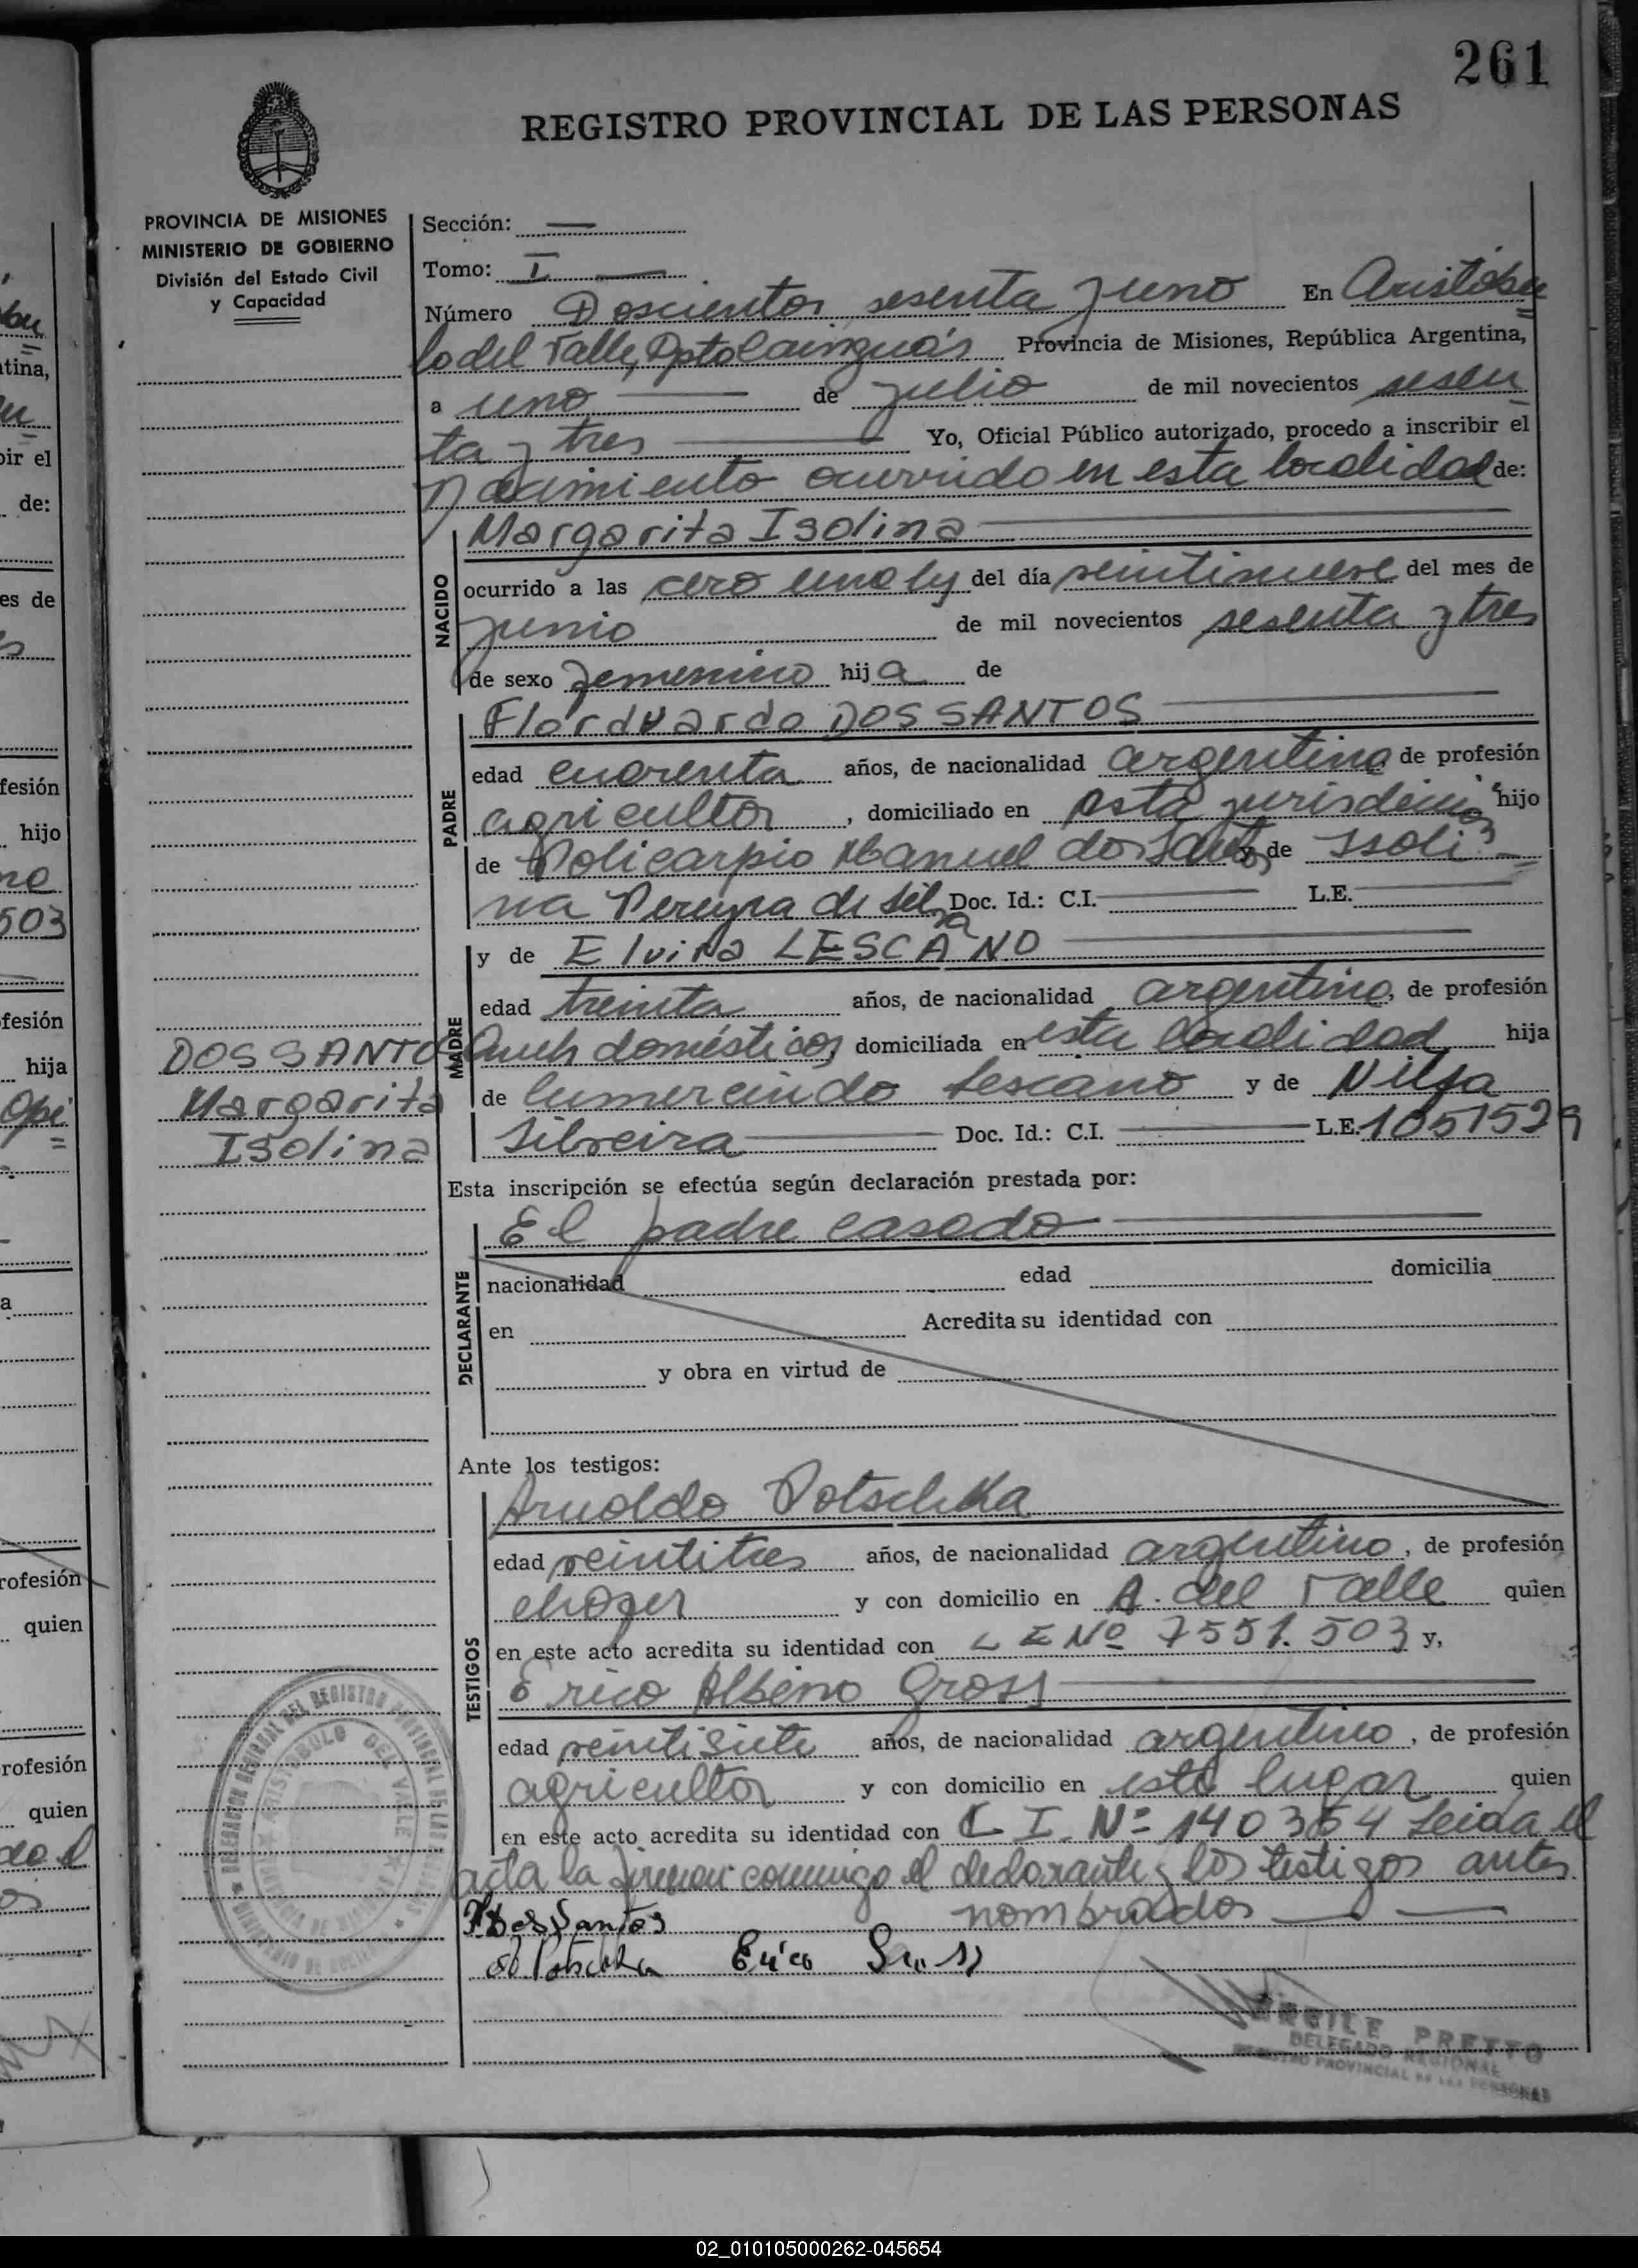 261
REGISTRO PROVINCIAL DE LAS PERSONAS
PROVINCIA DE MISIONES
MINISTERIO DE GOBIERNO
División del Estado Civil
y Capacidad
Sección: —
Tomo: I —
Número Doscientos sesenta y uno En Aristóbu
lo del Valle, Dpto Cainguás Provincia de Misiones, República Argentina,
a uno de julio de mil novecientos sesen
ta y tres Yo, Oficial Público autorizado, procedo a inscribir el
nacimiento ocurrido en esta localidad de:
NACIDO
Margarita Isolina
ocurrido a las cero una hs del día veintinueve del mes de
junio de mil novecientos sesenta y tres
de sexo femenino hija de
PADRE
Florduardo DOS SANTOS
edad cuarenta años, de nacionalidad argentina de profesión
agricultor, domiciliado en esta jurisdicción hijo
de Policarpio Manuel dos Santos y de Isoli
na Pereyra da Silva Doc. Id.: C.I. L.E.
MADRE
y de Elvira LESCANO
edad treinta años, de nacionalidad argentina, de profesión
domésticos, domiciliada en esta localidad hija
de Cumercindo Lescano y de Nilsa
Silveira Doc. Id.: C.I. L.E. 1051529
DOS SANTOS
Margarita
Isolina
Esta inscripción se efectúa según declaración prestada por:
DECLARANTE
El padre casado
nacionalidad edad domicilia
en Acredita su identidad con
y obra en virtud de
Ante los testigos:
TESTIGOS
Arnoldo Potschka
edad veintitres años, de nacionalidad argentino, de profesión
chofer y con domicilio en A. del Valle quien
en este acto acredita su identidad con L E Nº 7551.503 y,
Erico Albino Gross
edad veintisiete años, de nacionalidad argentino, de profesión
agricultor y con domicilio en este lugar quien
en este acto acredita su identidad con C I. Nº 140364 Leida el
acta la firman conmigo el declarante y los testigos antes
nombrados
Dos Santos
Potschka Erico Gross
DELEGACION REGIONAL DEL REGISTRO PROVINCIAL DE LAS PERSONAS
ARISTOBULO DEL VALLE
PROVINCIA DE MISIONES
MINISTERIO DE GOBIERNO
PRETTO
DELEGADO REGIONAL
REGISTRO PROVINCIAL DE LAS PERSONAS
02_010105000262-045654